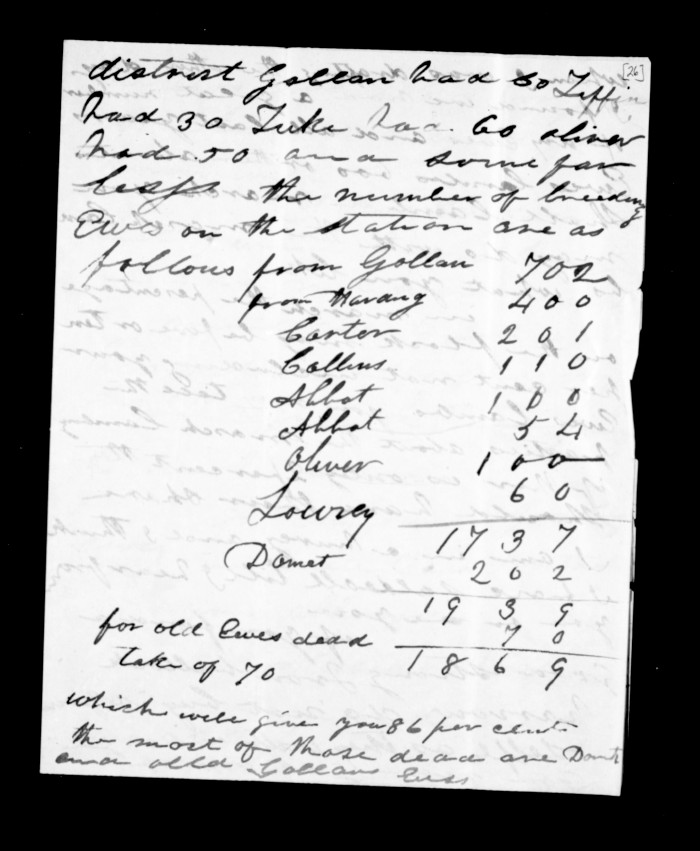 [26]
district Gollan had 80 Teffi
had 30 Tuke had 60 oliver
had 50 and some far
less the number of breeding
Ewes on the station are as
follows from Gollan 702
from Harding 400
Carter 201
Collins 110
Abbot 100
Abbot 54
Oliver 100
Lowrey 60
1737
Domet 202
1939
for old Ewes dead 70
take of 70 1869
which will give you 86 per cent
the most of those dead are Domets
and olld Gollans Ewes